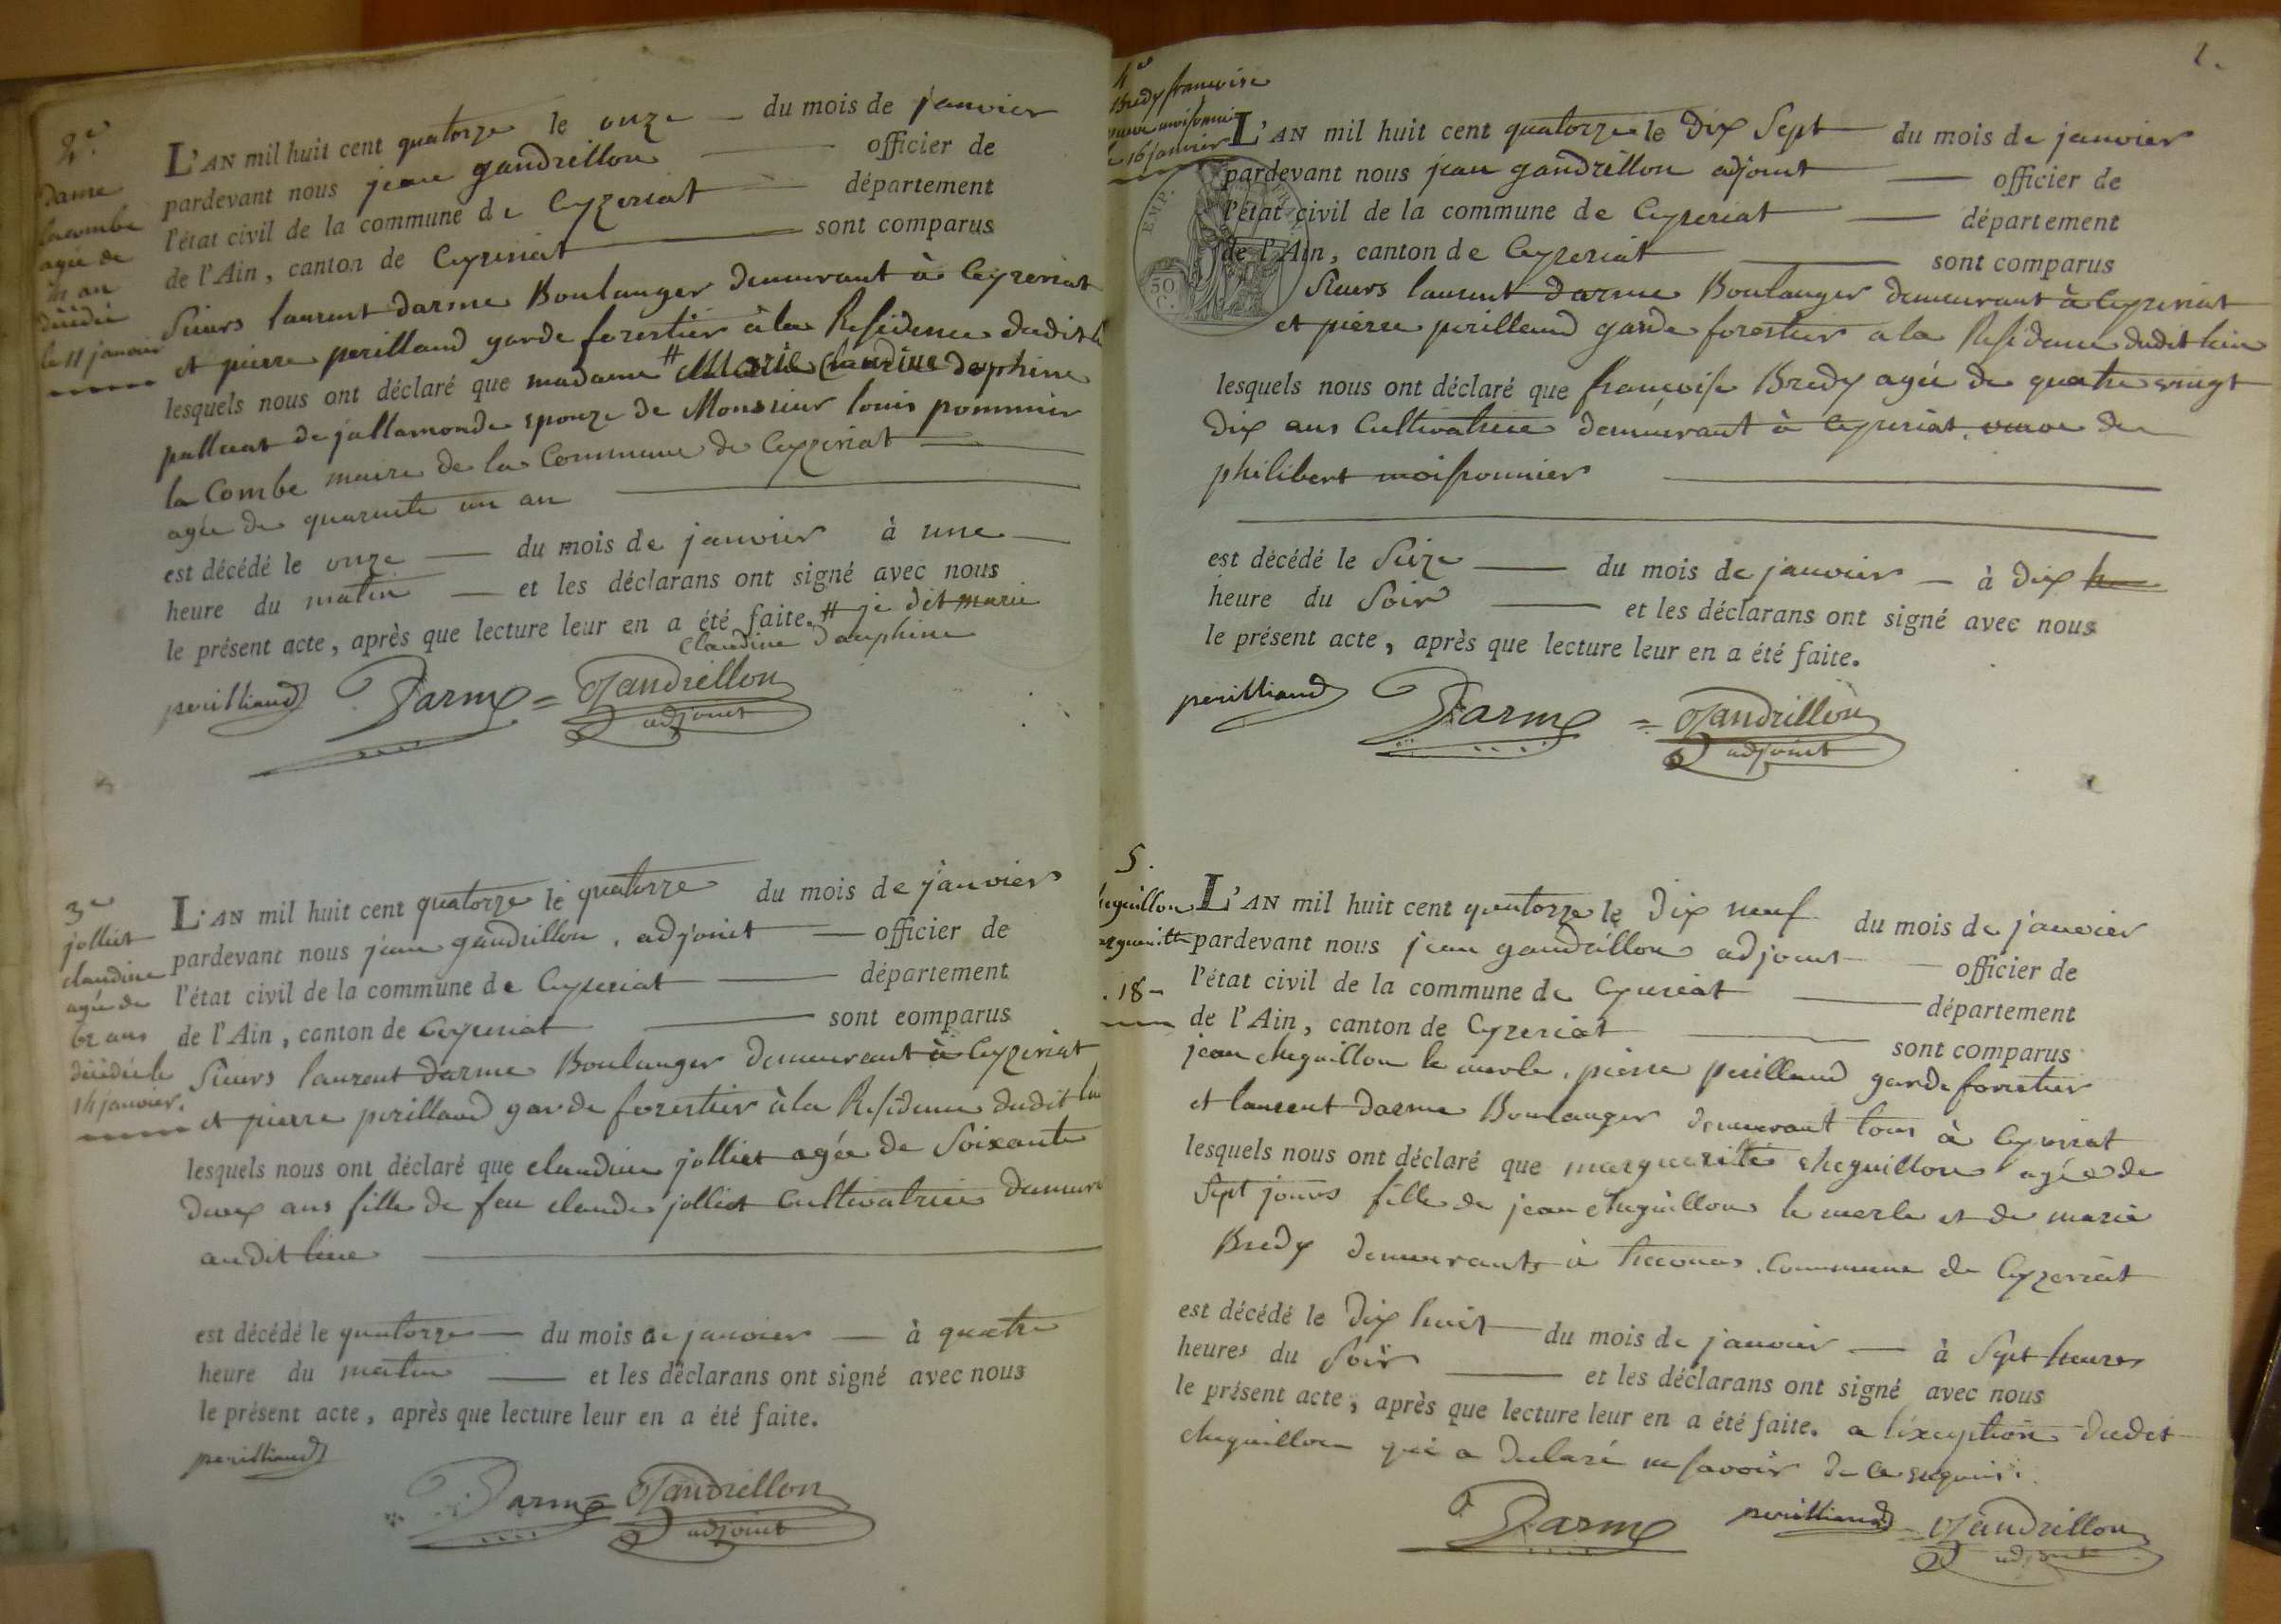 2e.
Dame
lacombe
agée de
41 an
décédée
le 11 janvier
L'AN mil huit cent quatorze le onze du mois de janvier
pardevant nous jean gandrillon officier de
l'état civil de la commune de Ceyzeriat département
de l'Ain, canton de Ceyzeriat sont comparus
Sieurs laurent darme Boulanger demeurant à Ceyzeriat
et pierre perilland garde forestier à la Residence dudit
lesquels nous ont déclaré que madame # Marie Claudine dophine
palluat de jallamonde epouze de Monsieur louis pommier
la Combe maire de la Commune de Ceyzeriat
agée de quarante un an
est décédé le onze du mois de janvier à une
heure du matin et les déclarans ont signé avec nous
le présent acte, après que lecture leur en a été faite. # je dit marie
Claudine Dauphine
perilliand Darme = Gandrillon
adjoint
3e
jolliet
claudine
agée de
62 ans
décédée le
14 janvier.
L'AN mil huit cent quatorze le quatorze du mois de janvier
pardevant nous jean gandrillon, adjoint officier de
l'état civil de la commune de Ceyzeriat département
de l'Ain, canton de Ceyzeriat sont comparus
Sieurs laurent darme Boulanger demeurant à Ceyzeriat
et pierre perilland garde forestier à la Residence dudit lieu
lesquels nous ont déclaré que claudine jolliet agée de Soixante
Deux ans fille de feu claude jolliet Cultivatrice
audit lieu
est décédé le quatorze du mois de janvier à quatre
heure du matin et les déclarans ont signé avec nous
le présent acte, après que lecture leur en a été faite.
perilliand
Darme = Gandrillon
adjoint
2.
4e
Bredy francoise
veuve
le 16 janvier
EMP.
50
C.
L'AN mil huit cent quatorze le Dix Sept du mois de janvier
pardevant nous jean gandrillon adjoint officier de
l'état civil de la commune de Ceyzeriat département
de l'Ain, canton de Ceyzeriat sont comparus
Sieurs laurent darme Boulanger demeurant à Ceyzeriat
et pierre perilland garde forestier a la Residence dudit lieu
lesquels nous ont déclaré que françoise Bredy agée de quatre vingt
Dix ans Cultivatrice demeurant à Ceyzeriat, veuve de
philibert moissonnier
est décédé le Seize du mois de janvier à dix
heure du Soir et les déclarans ont signé avec nous
le présent acte, après que lecture leur en a été faite.
perilliand Darme = Gandrillon
adjoint
5.
18
L'AN mil huit cent quatorze le Dix neuf du mois de janvier
pardevant nous jean gandrillon adjoint officier de
l'état civil de la commune de Ceyzeriat département
de l'Ain, canton de Ceyzeriat sont comparus
jean cheguillon le merle, pierre perilland garde forestier
et laurent darme Boulanger demeurant tous à Ceyzeriat
lesquels nous ont déclaré que margueritte cheguillon agée de
Sept jours fille de jean cheguillon le merle et de marie
Bredy demeurants à commune de Ceyzeriat
est décédé le Dix huit du mois de janvier à Sept heures
heures du Soir et les déclarans ont signé avec nous
le présent acte, après que lecture leur en a été faite. a l'exception dudit
cheguillon qui a declaré ne savoir de ce enquis.
Darme perilliand Gandrillon
adjoint